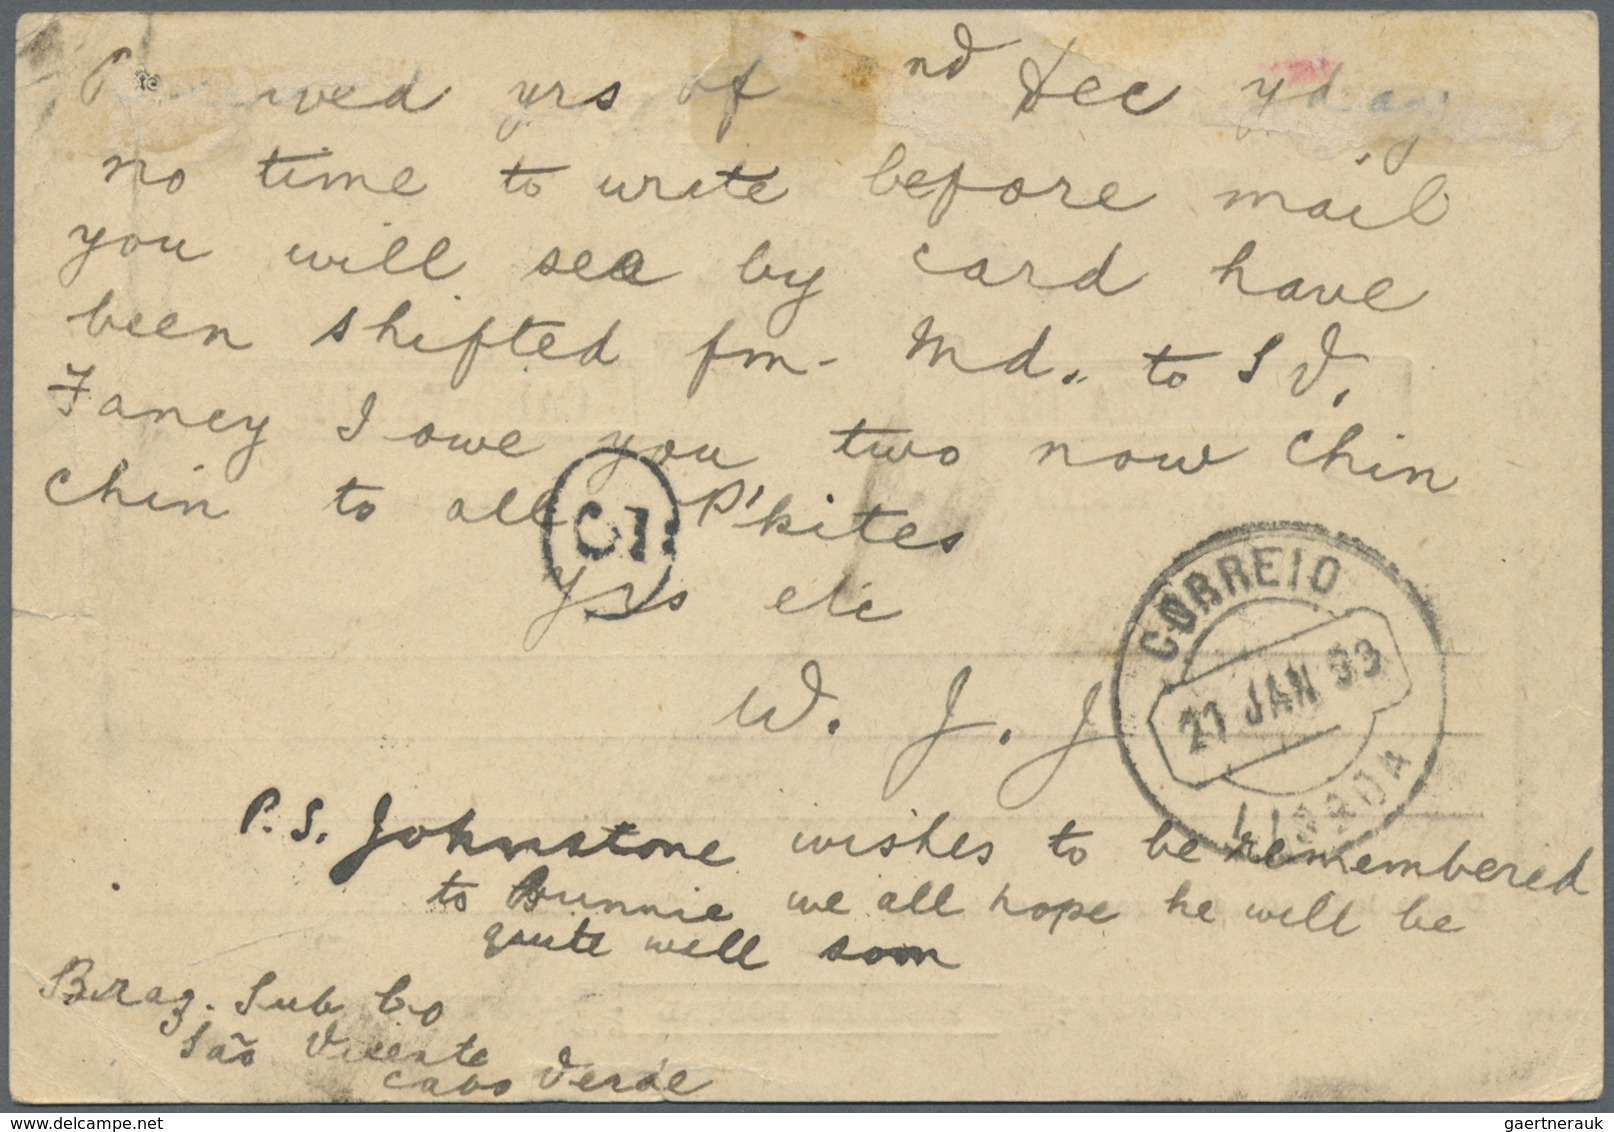 yrs of nd Dec
no time to write before mail
you will see by card have
been shifted fm - Md. to S V.
Fancy I owe you two now chin
chin to all P'kites
yrs etc
W. J. J
P.S. Johnstone wishes to be remembered
to Bunnie we all hope he will be
quite well soon
Braz. Sub Co
São Vicente
Cabo Verde
C.I.
CORREIO
21 JAN 93
LISBOA
gaertnerauk